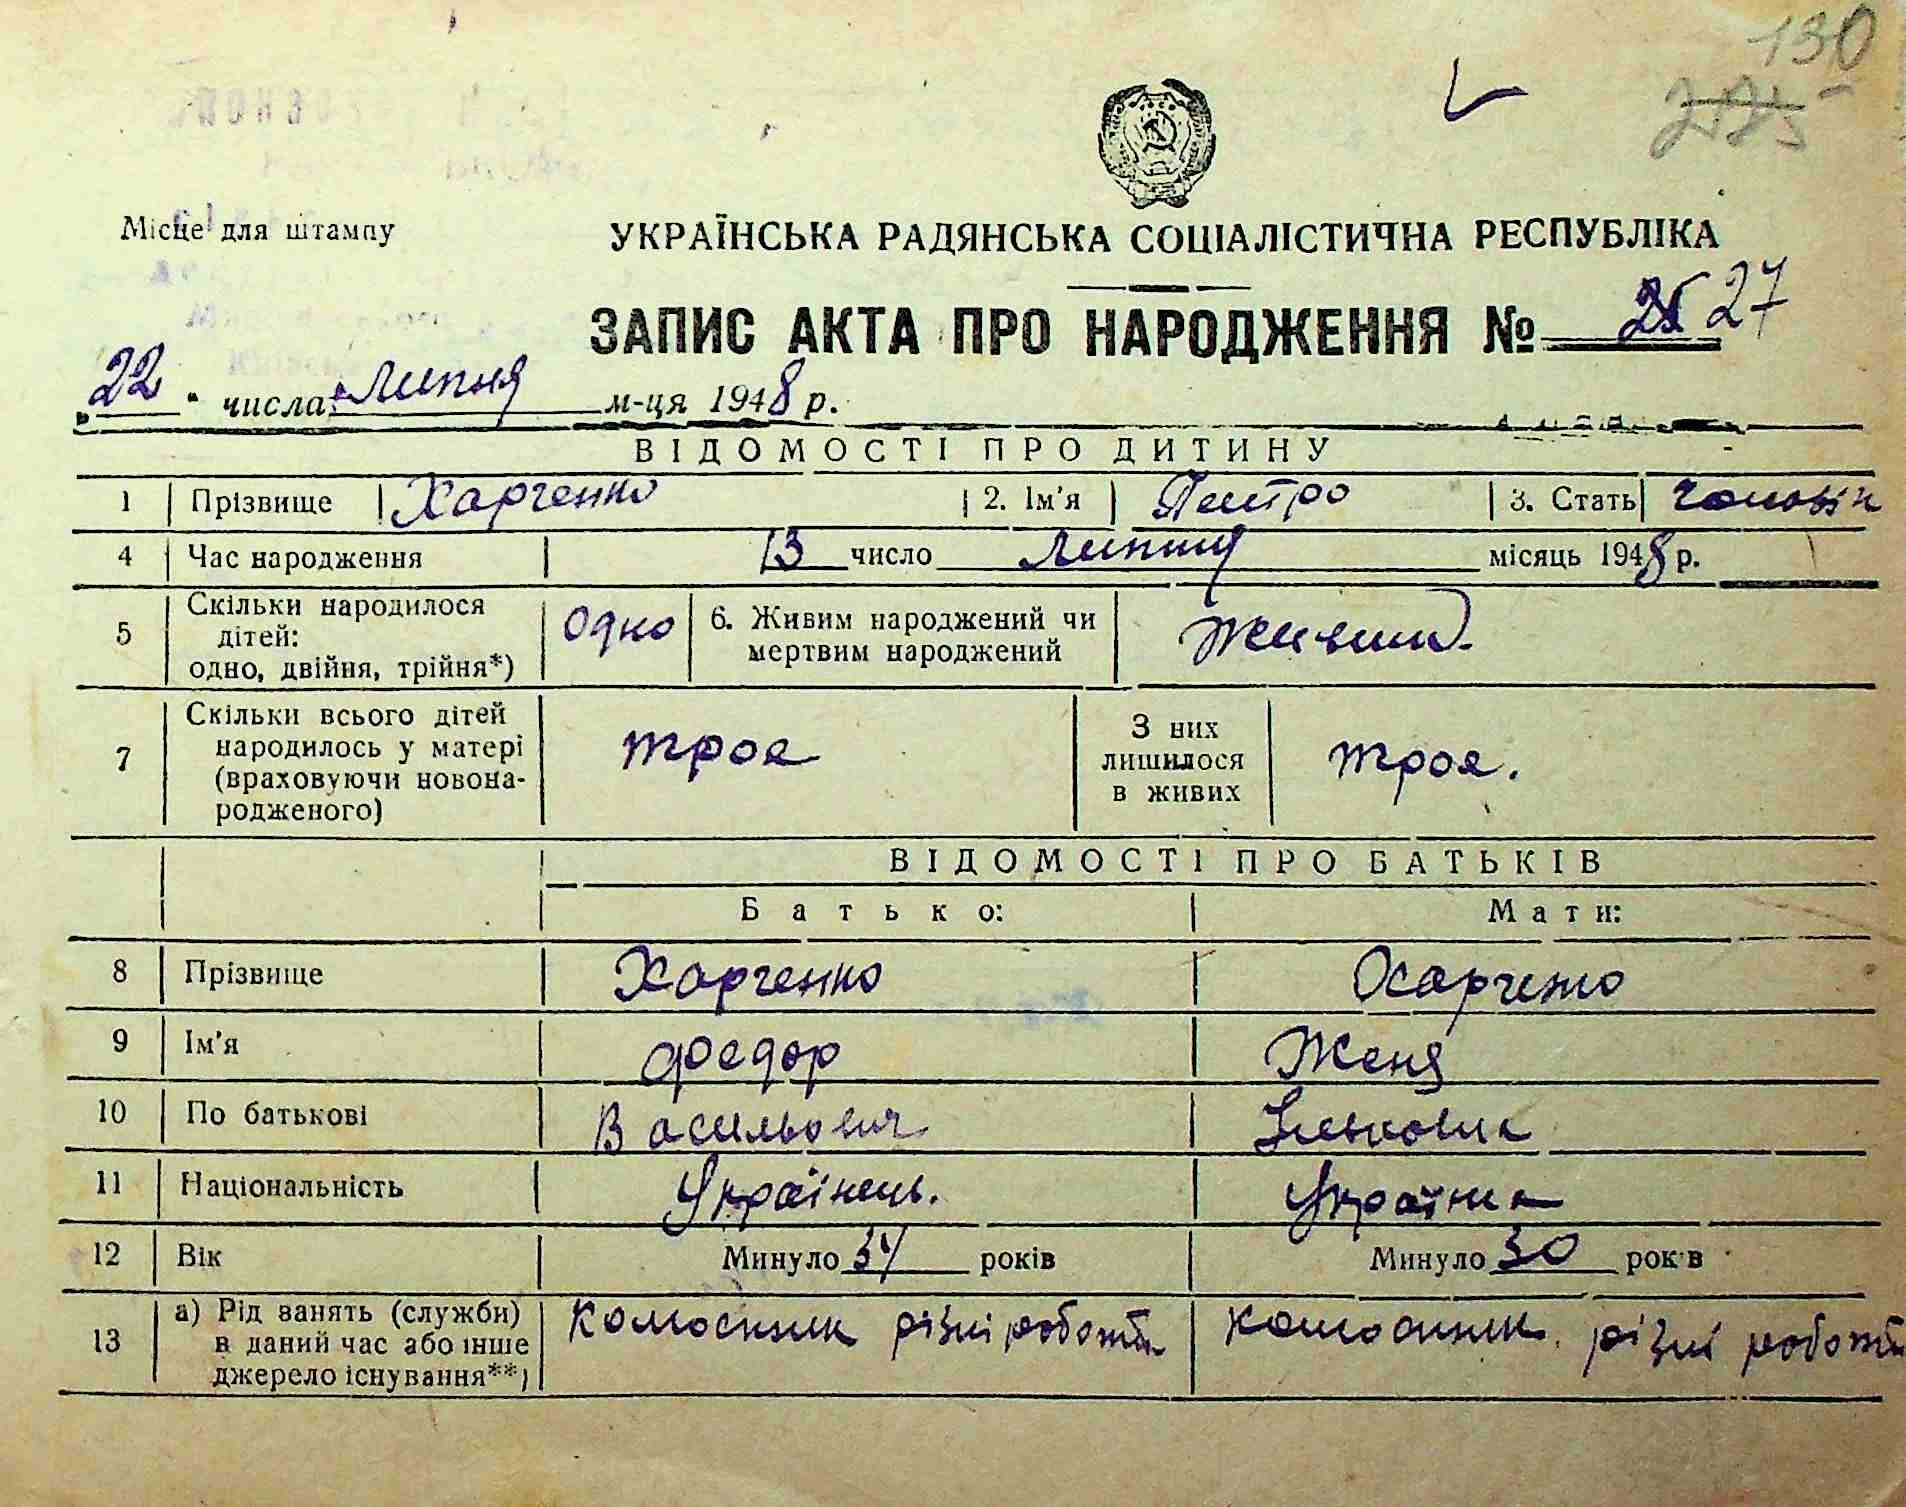 130
Місце для штампу
УКРАЇНСЬКА РАДЯНСЬКА СОЦІАЛІСТИЧНА РЕСПУБЛІКА
ЗАПИС АКТА ПРО НАРОДЖЕННЯ № 27
„22“ числа липня м-ця 1948 р.
ВІДОМОСТІ ПРО ДИТИНУ
1 Прізвище Харченко 2. Ім'я Петро 3. Стать чоловік
4 Час народження 13 число липня місяць 1948 р.
5 Скільки народилося дітей: одно, двійня, трійня*) одно 6. Живим народжений чи мертвим народжений Живим.
7 Скільки всього дітей народилось у матері (враховуючи новонародженого) троя З них лишилося в живих троя.
ВІДОМОСТІ ПРО БАТЬКІВ
Батько: Мати:
8 Прізвище Харченко Харченко
9 Ім'я Федор Женя
10 По батькові Васильович
11 Національність Українець. Українка
12 Вік Минуло 34 років Минуло 30 років
13 а) Рід занять (служби) в даний час або інше джерело існування**) колхосник різні роботи колхосник різні роботи